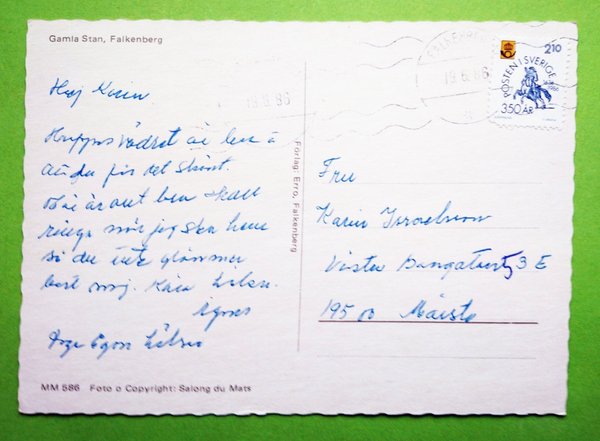 Gamla Stan, Falkenberg
Hej Karin
Hoppas vädret är bra å
att du får det skönt.
är allt bra skall
ringa när jag ska hem
så du inte glömmer
bort mig. Kära Hälsn.
Agnes
Egon Hälsar
MM 586 Foto o Copyright: Salong du Mats
Förlag: Erro, Falkenberg
FALKENBERG
19.6.86
19.6.86
2.10
POSTEN I SVERIGE
1636 1986
350 ÅR
Fru
Karin Israelsson
Västra Bangatan 3 E
195 00 Märsta